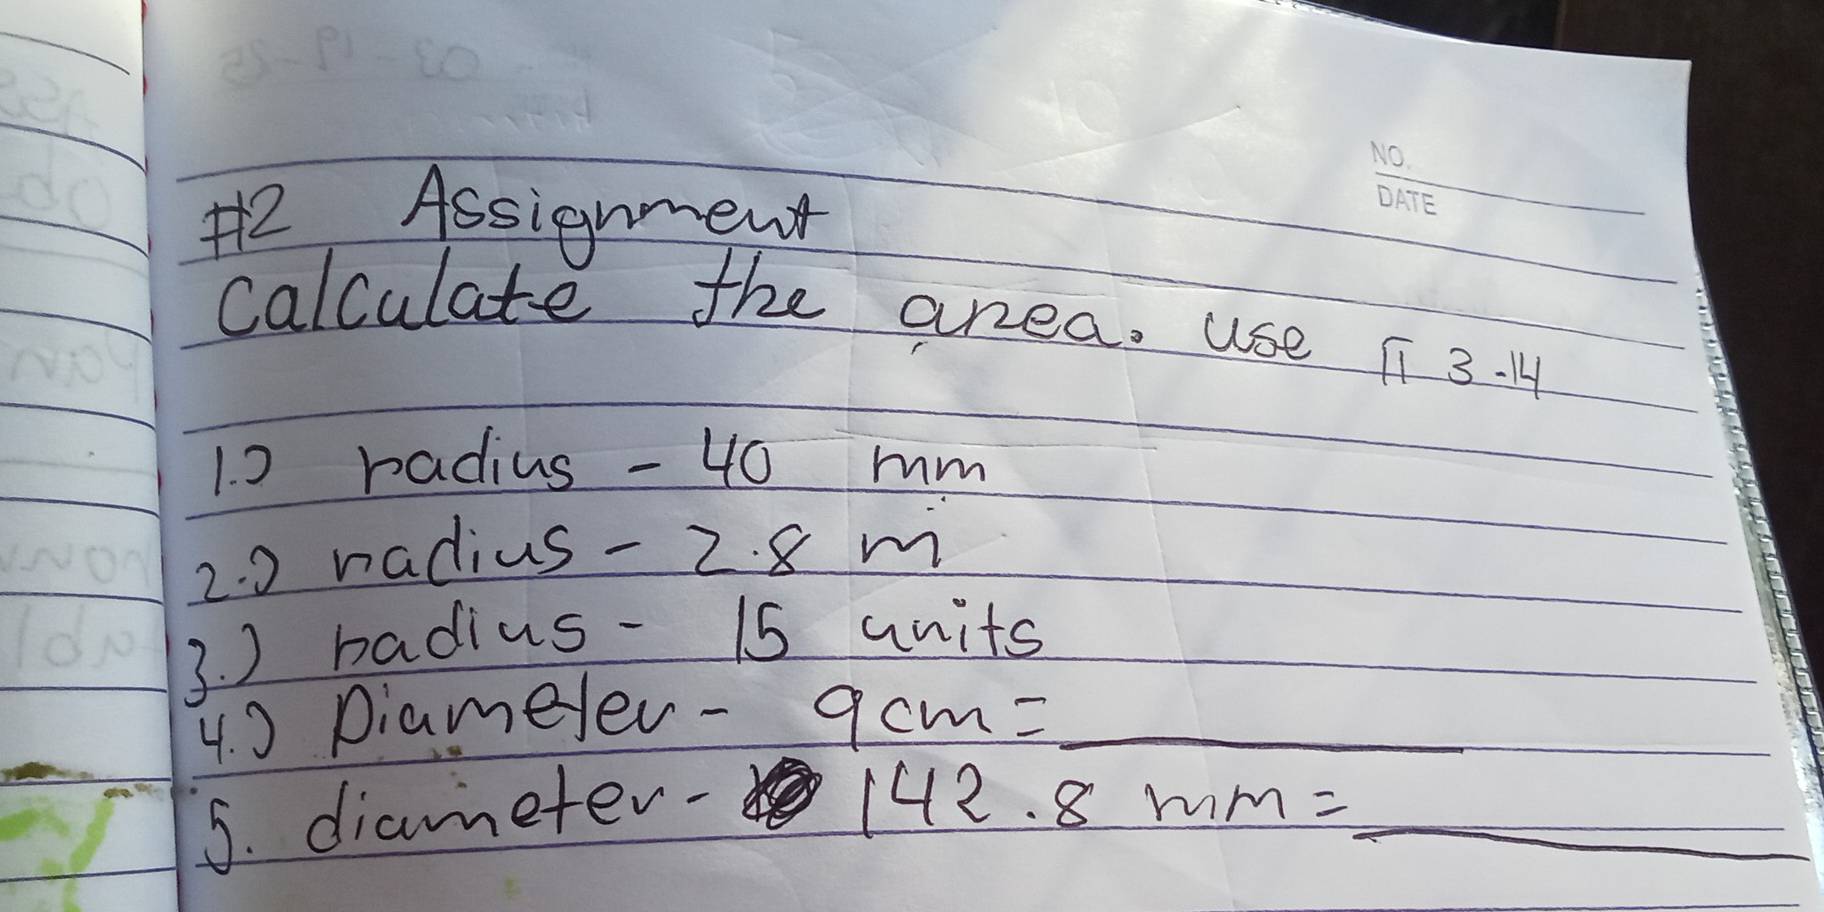 NO.
DATE
#2 Assignment
Calculate the area. use π 3.14
1.) radius - 40 mm
2.) radius - 2.8 m
3.) radius - 15 units
4.) Diameter - 9cm = __________
5. diameter - 142.8 mm = __________